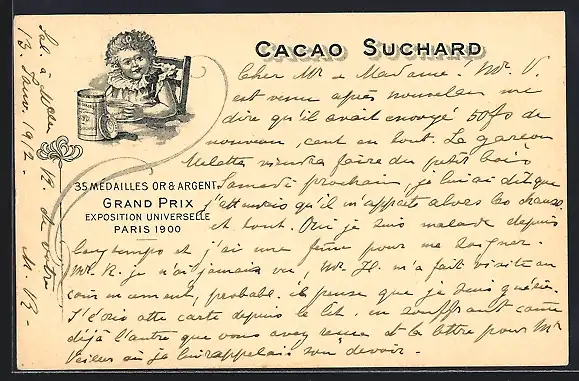 CACAO SUCHARD
35 MÉDAILLES OR & ARGENT
GRAND PRIX
EXPOSITION UNIVERSELLE
PARIS 1900
Cher Mr & Madame! Mr V.
est venu après nouvelan me
dire qu'il avait envoyé 50 fs de
nouveau, cent en tout. Le garçon
viendra faire du petit bois
Samedi prochain, je lui ai dit que
j'attendais qu'il m'apporte alors les choses
et tout. Oui je suis malade depuis
longtemps et j'ai une femme pour me soigner.
Mr. R. je n'ai jamais vu, Mr. H. m'a fait visite au
commencement, probabl. il pense que je suis guérie.
J'écris cette carte depuis le lit, en souffrant comme
déjà l'autre que vous avez reçue et la lettre pour Mr
où je lui rappelais son devoir.
13. Janv. 1912.